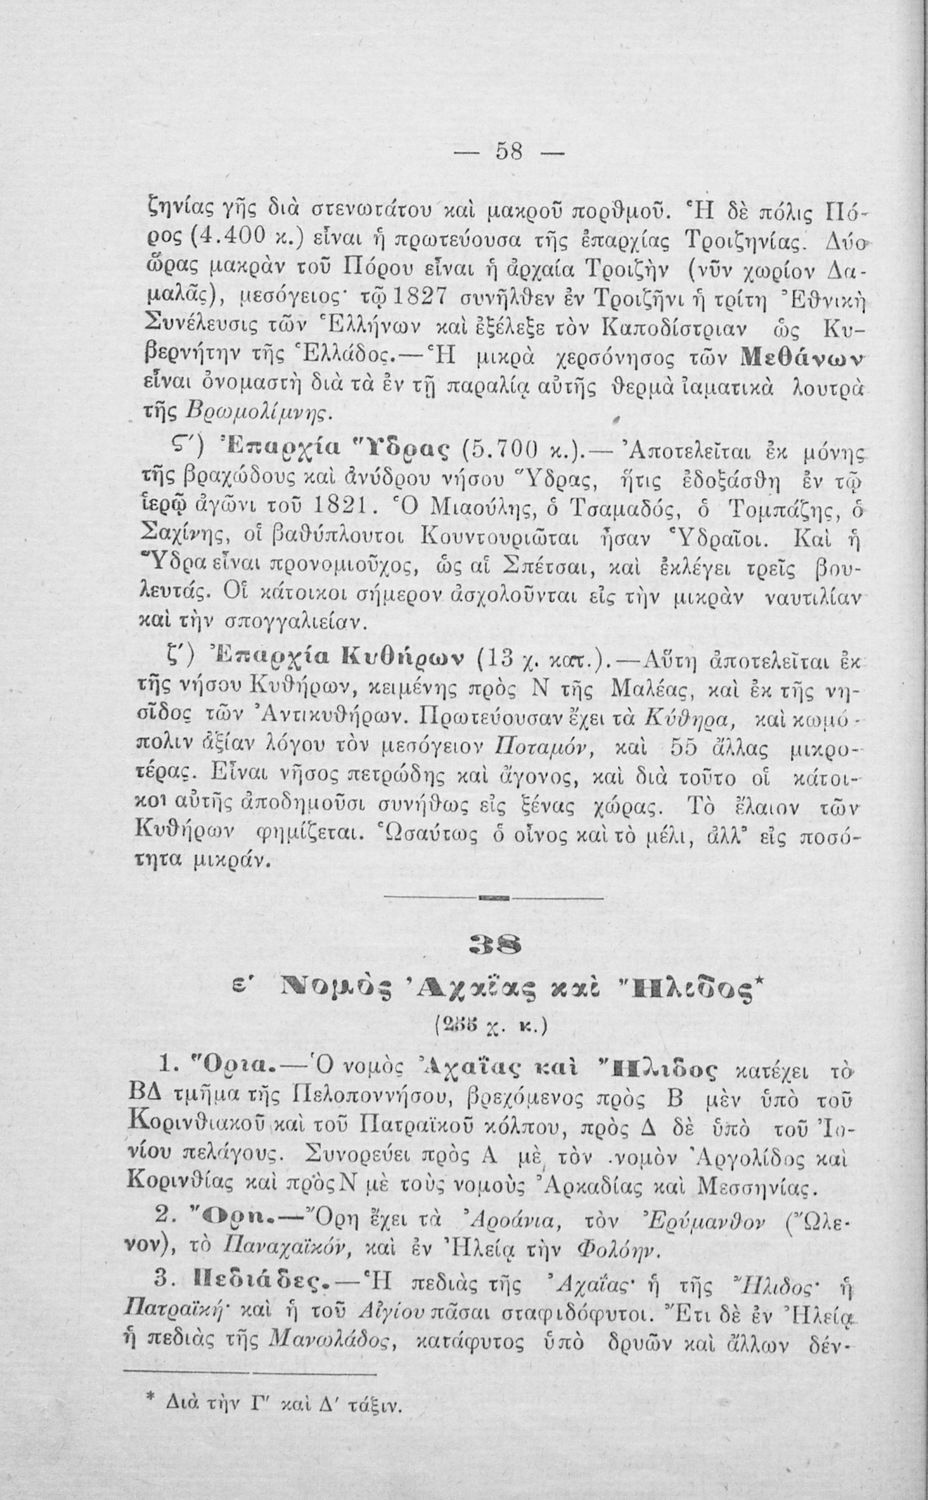 — 58 —
ζηνίας γῆς διὰ στενωτάτου καὶ μακροῦ πορθμοῦ. Ἡ δὲ πόλις Πό-
ρος (4.400 κ.) εἶναι ἡ πρωτεύουσα τῆς ἐπαρχίας Τροιζηνίας. Δύο
ὥρας μακρὰν τοῦ Πόρου εἶναι ἡ ἀρχαία Τροιζὴν (νῦν χωρίον Δα-
μαλᾶς), μεσόγειος· τῷ 1827 συνῆλθεν ἐν Τροιζῆνι ἡ τρίτη Ἐθνικὴ
Συνέλευσις τῶν Ἑλλήνων καὶ ἐξέλεξε τὸν Καποδίστριαν ὡς Κυ-
βερνήτην τῆς Ἑλλάδος.—Ἡ μικρὰ χερσόνησος τῶν Μεθάνων
εἶναι ὀνομαστὴ διὰ τὰ ἐν τῇ παραλίᾳ αὐτῆς θερμὰ ἰαματικὰ λουτρὰ
τῆς Βρωμολίμνης.
Ϛ΄) Ἐπαρχία Ὕδρας (5.700 κ.).— Ἀποτελεῖται ἐκ μόνης
τῆς βραχώδους καὶ ἀνύδρου νήσου Ὕδρας, ἥτις ἐδοξάσθη ἐν τῷ
ἱερῷ ἀγῶνι τοῦ 1821. Ὁ Μιαούλης, ὁ Τσαμαδός, ὁ Τομπάζης, ὁ
Σαχίνης, οἱ βαθύπλουτοι Κουντουριῶται ἦσαν Ὑδραῖοι. Καὶ ἡ
Ὕδρα εἶναι προνομιοῦχος, ὡς αἱ Σπέτσαι, καὶ ἐκλέγει τρεῖς βου-
λευτάς. Οἱ κάτοικοι σήμερον ἀσχολοῦνται εἰς τὴν μικρὰν ναυτιλίαν
καὶ τὴν σπογγαλιείαν.
ζ΄) Ἐπαρχία Κυθήρων (13 χ. κατ.).—Αὕτη ἀποτελεῖται ἐκ
τῆς νήσου Κυθήρων, κειμένης πρὸς Ν τῆς Μαλέας, καὶ ἐκ τῆς νη-
σῖδος τῶν Ἀντικυθήρων. Πρωτεύουσαν ἔχει τὰ Κύθηρα, καὶ κωμό-
πολιν ἀξίαν λόγου τὸν μεσόγειον Ποταμόν, καὶ 55 ἄλλας μικρο-
τέρας. Εἶναι νῆσος πετρώδης καὶ ἄγονος, καὶ διὰ τοῦτο οἱ κάτοι-
κοι αὐτῆς ἀποδημοῦσι συνήθως εἰς ξένας χώρας. Τὸ ἔλαιον τῶν
Κυθήρων φημίζεται. Ὡσαύτως ὁ οἶνος καὶ τὸ μέλι, ἀλλ' εἰς ποσό-
τητα μικράν.
38
ε΄ Νομὸς Ἀχαΐας καὶ Ἤλιδος*
(255 χ. κ.)
1. Ὅρια.—Ὁ νομὸς Ἀχαΐας καὶ Ἤλιδος κατέχει τὸ
ΒΔ τμῆμα τῆς Πελοποννήσου, βρεχόμενος πρὸς Β μὲν ὑπὸ τοῦ
Κορινθιακοῦ καὶ τοῦ Πατραϊκοῦ κόλπου, πρὸς Δ δὲ ὑπὸ τοῦ Ἰο-
νίου πελάγους. Συνορεύει πρὸς Α μὲ τὸν νομὸν Ἀργολίδος καὶ
Κορινθίας καὶ πρὸς Ν μὲ τοὺς νομοὺς Ἀρκαδίας καὶ Μεσσηνίας.
2. Ὄρη.—Ὄρη ἔχει τὰ Ἀροάνια, τὸν Ἐρύμανθον (Ὤλε-
νον), τὸ Παναχαϊκόν, καὶ ἐν Ἠλείᾳ τὴν Φολόην.
3. Πεδιάδες.—Ἡ πεδιὰς τῆς Ἀχαΐας· ἡ τῆς Ἤλιδος· ἡ
Πατραϊκή· καὶ ἡ τοῦ Αἰγίου πᾶσαι σταφιδόφυτοι. Ἔτι δὲ ἐν Ἠλείᾳ
ἡ πεδιὰς τῆς Μανωλάδος, κατάφυτος ὑπὸ δρυῶν καὶ ἄλλων δέν-
* Διὰ τὴν Γ΄ καὶ Δ΄ τάξιν.